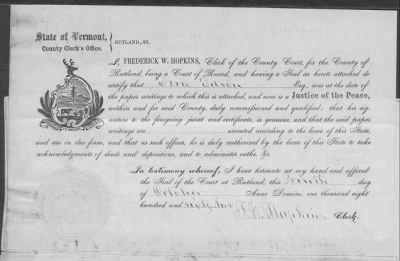 State of Vermont,
County Clerk's Office.
RUTLAND, SS.
I, FREDERICK W. HOPKINS, Clerk of the County Court, for the County of
Rutland, being a Court of Record, and having a Seal as hereto attached do
certify that Esq. was at the date of
the paper writings to which this is attached, and now is a Justice of the Peace,
within and for said County, duly commissioned and qualified: that his sig-
nature to the foregoing jurat and certificate, is genuine, and that the said paper
writings are executed according to the laws of this State,
and are in due form, and that as such officer, he is duly authorized by the laws of this State to take
acknowledgments of deeds and depositions, and to administer oaths, &c.
In testimony whereof, I have hereunto set my hand and affixed
the Seal of the Court at Rutland, this day
of October Anno Domini, one thousand eight
hundred and sixty two
F. W. Hopkins Clerk.